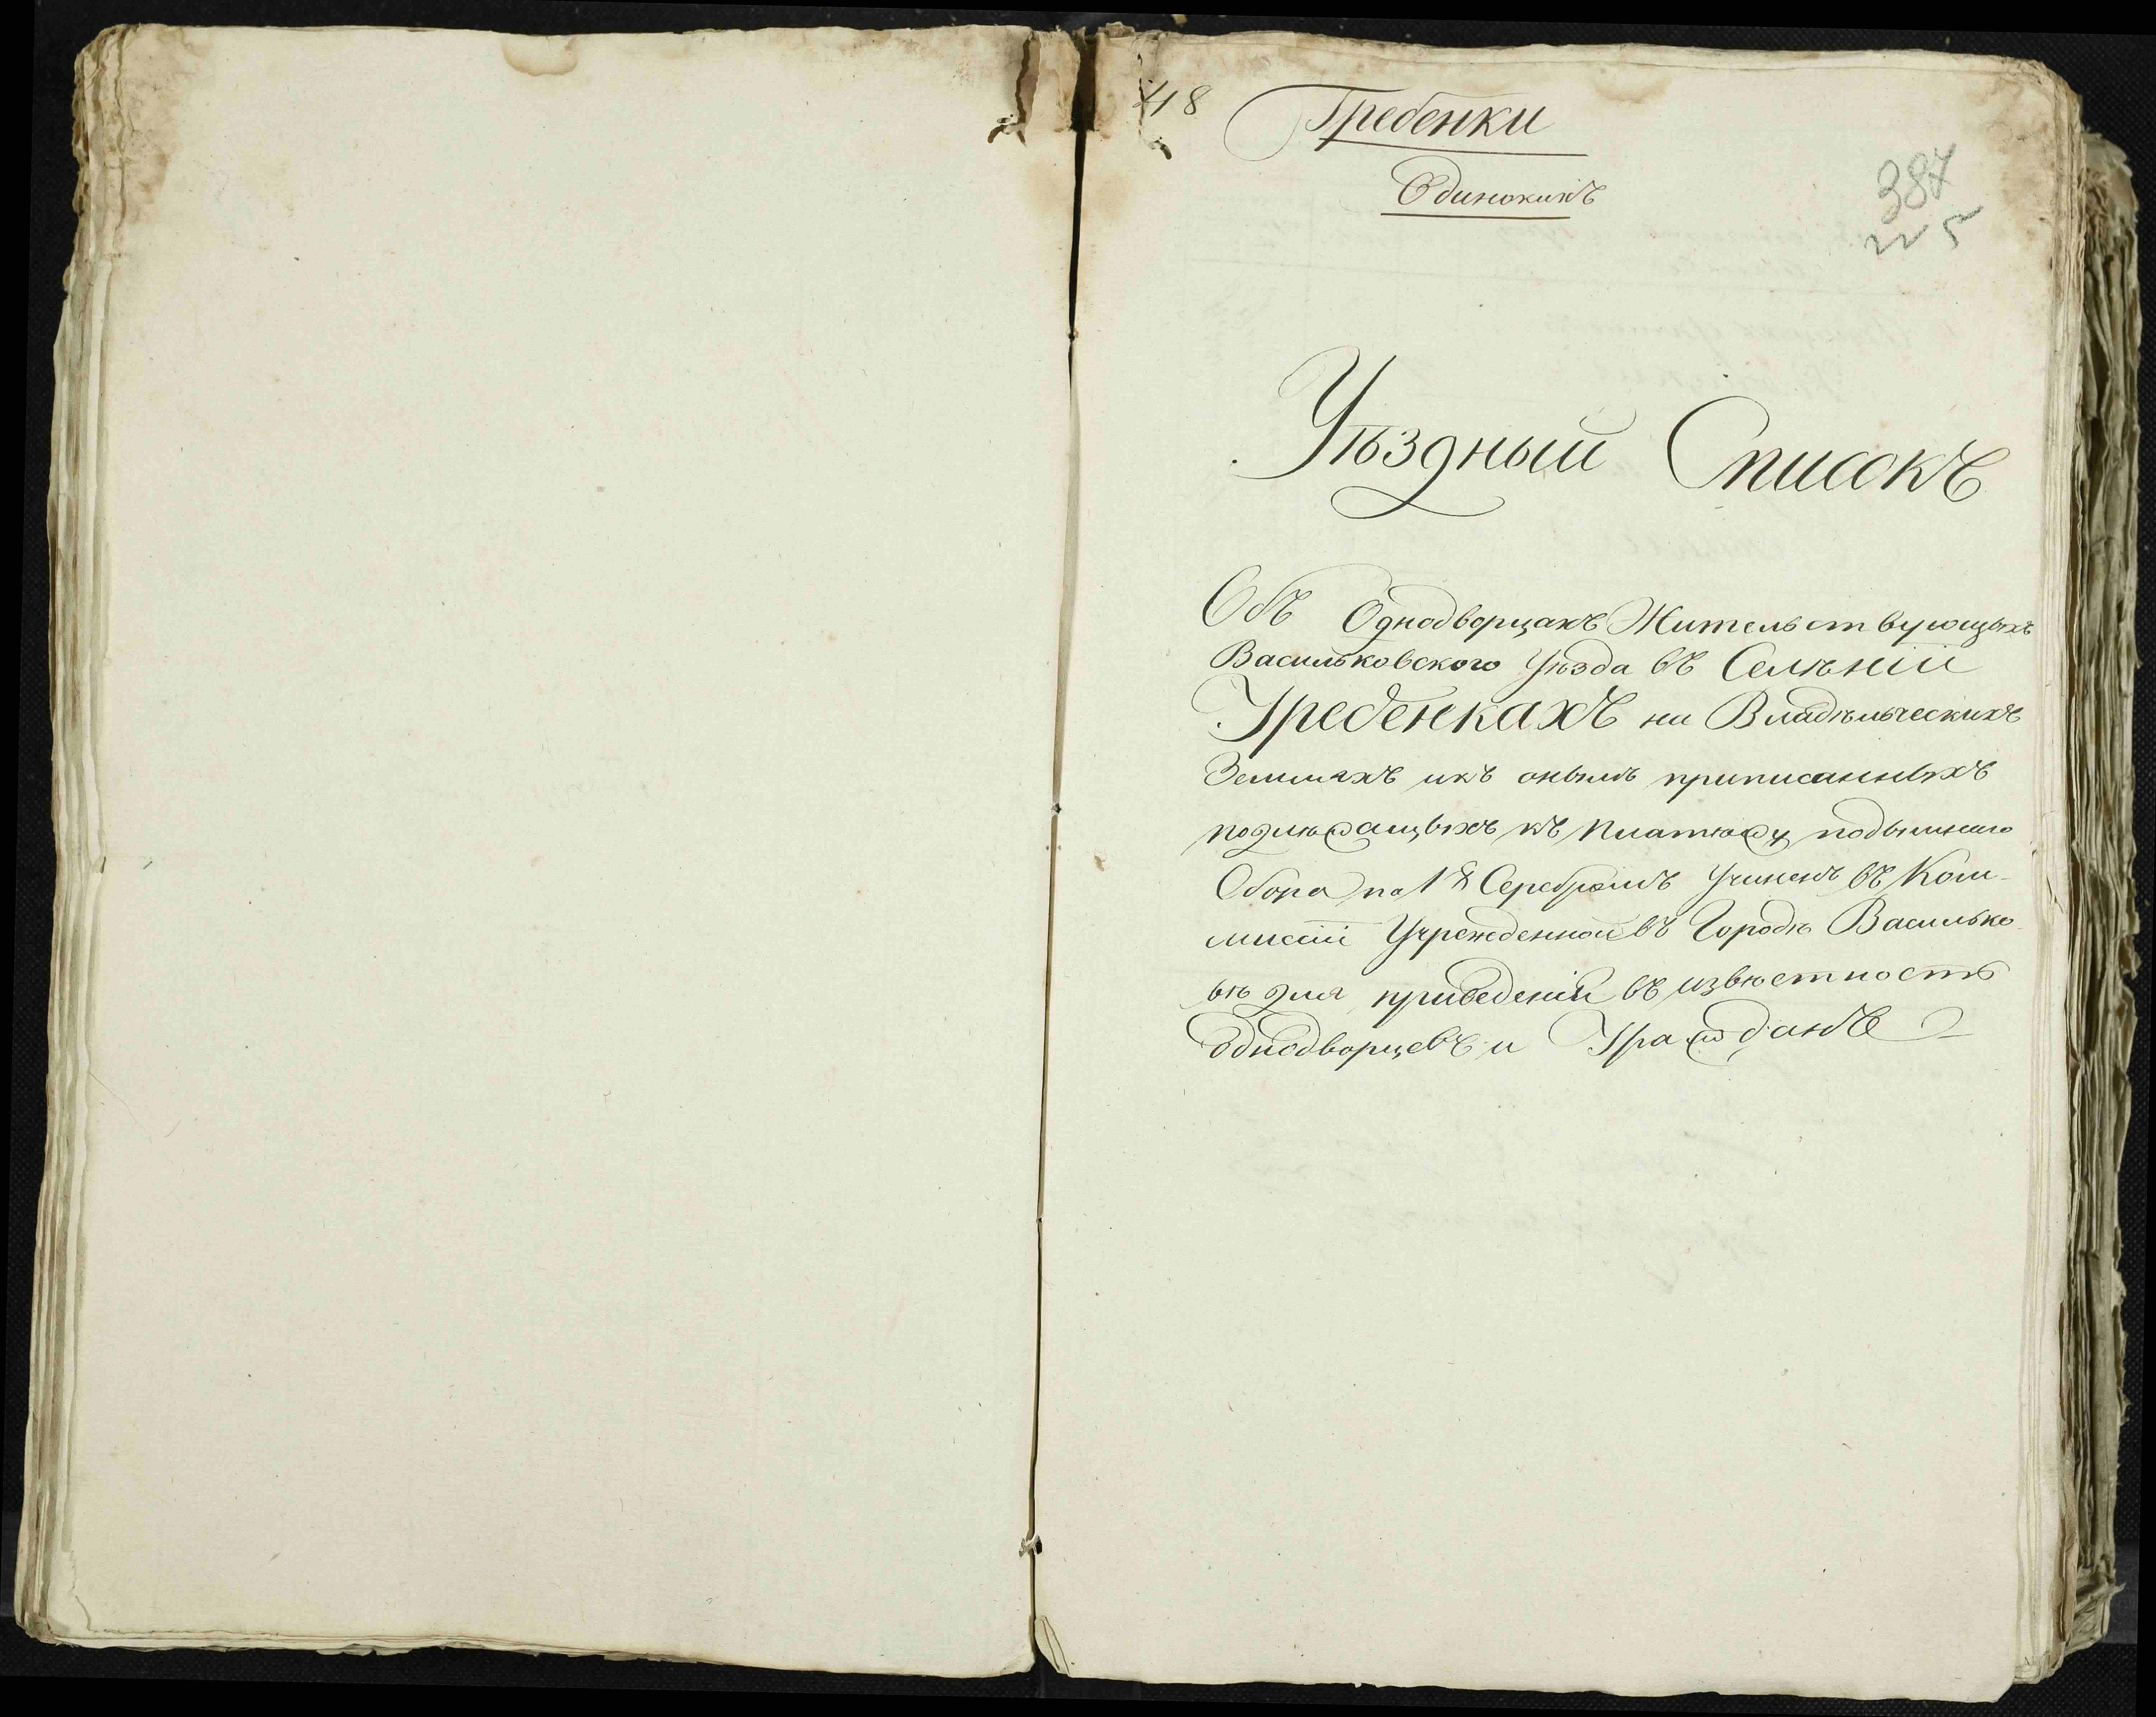 418
Гребенки
Одинокихъ
387
225
Уѣздный Списокъ
Объ Однодворцахъ Жительствующихъ
Васильковского Уѣзда въ Селѣніи
Гребенкахъ на Владѣльческихъ
Землияхъ икъ онымъ приписанныхъ
подлѣжащихъ къ Платѣжу подымнаго
Сбора по 1 Серебромъ Учиненъ въ Ком-
мисіи Учрежденной въ Городѣ Василько-
вѣ для приведенія въ извѣстность
Однодворцевъ и Гражданъ